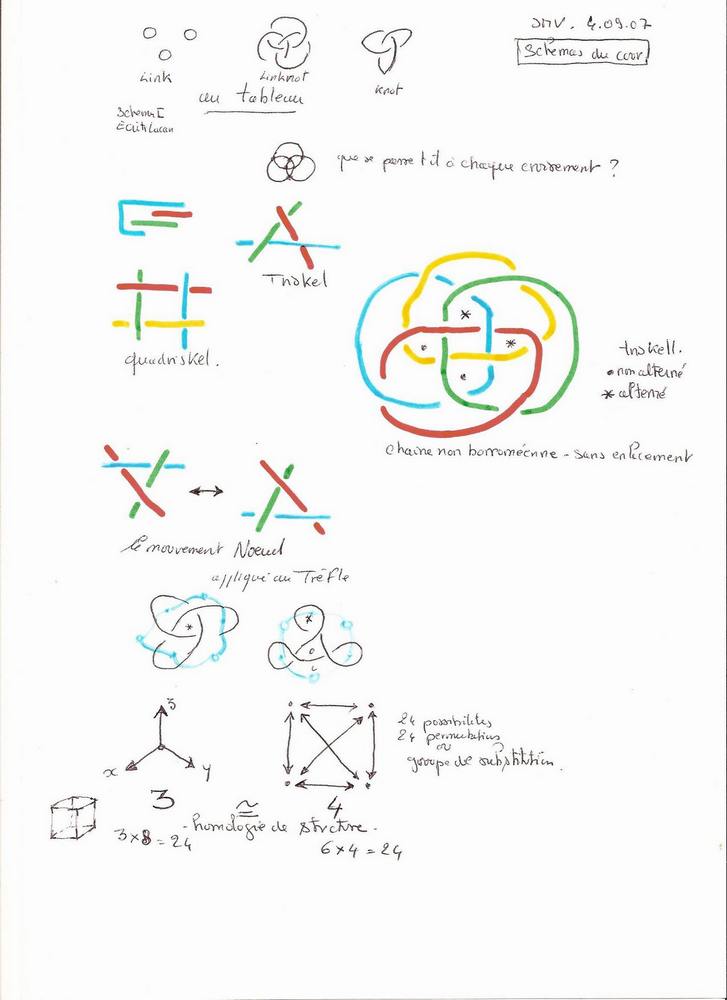 JMV. 4.09.07
Schémas du cour
Link
Linknot
Knot
au tableau
Schema I
Ecrits Lacan
que se passe t il à chaque croisement ?
Triskel
quadriskel.
triskell.
• non alterné
* alterné
chaine non borroméenne - sans enlacement
le mouvement Noeud
appliqué au Trèfle
3
x
y
24 possibilités
24 permutations
ou
groupe de substitution.
3
≅
4
- homologie de structure -
3 × 8 = 24
6 × 4 = 24